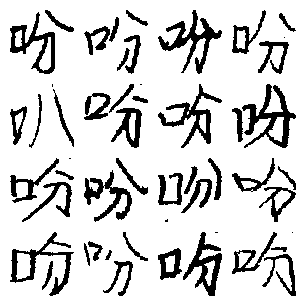 吩吩吩吩
叭吩吩吩
吩吩吻吩
吩吩吩吩